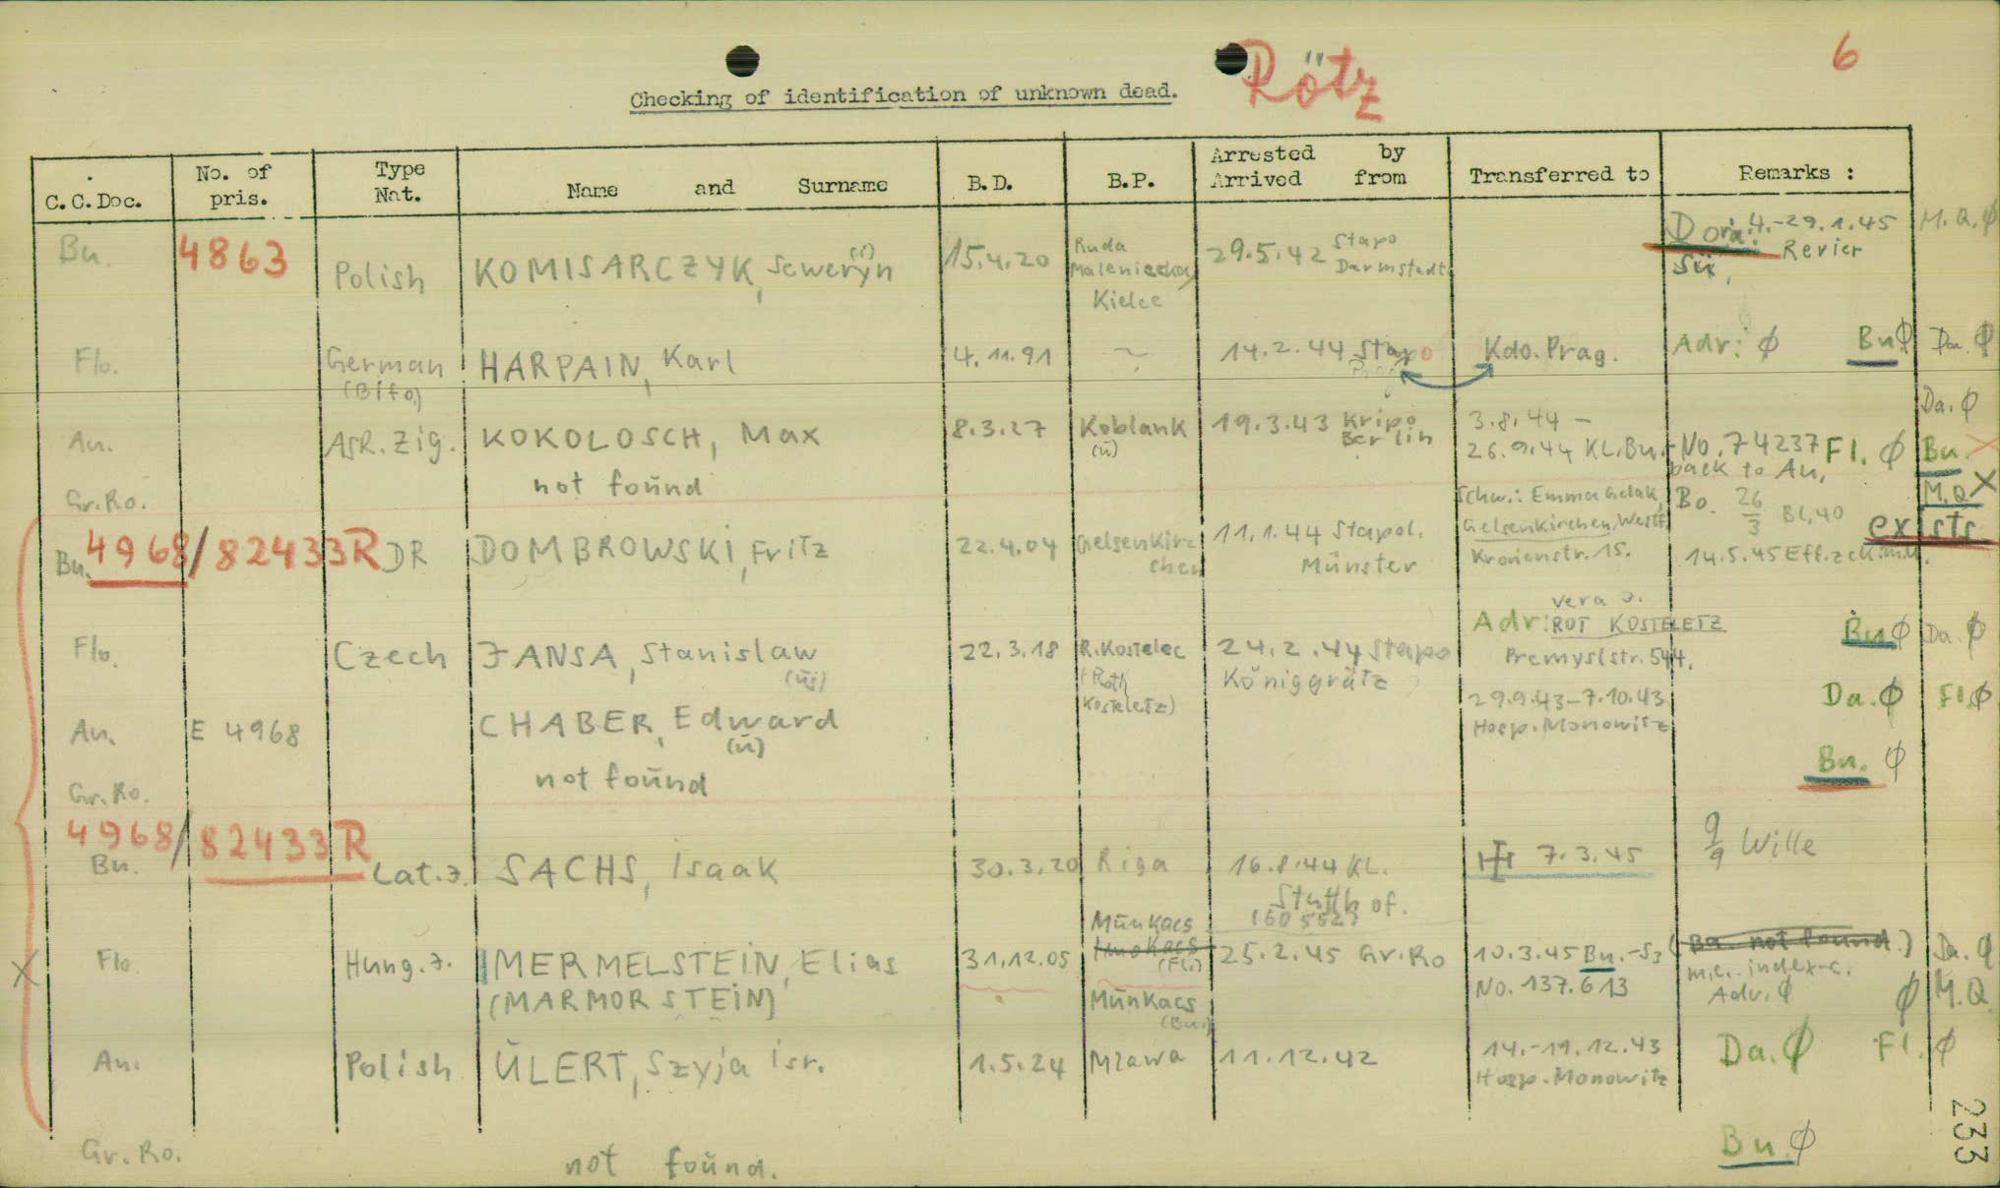 Rötz
6
Checking of identification of unknown dead.
C.C.Doc. No. of pris. Type Nat. Name and Surname B.D. B.P. Arrested by Arrived from Transferred to Remarks :
Bu. 4863 Polish KOMISARCZYK, Seweryn (i) 15.4.20 Ruda Maleniecka, Kielce 29.5.42 Stapo Darmstadt Dora: 4.-29.1.45 Revier M.Q. ϕ
Flo. German (Bifo) HARPAIN, Karl 4.11.91 ~ 14.2.44 Stapo Kdo. Prag. Adr: ϕ Bu ϕ Da. ϕ
Da. ϕ
An. ASR. Zig. KOKOLOSCH, Max 8.3.27 Koblank (u) 19.3.43 Kripo Berlin 3.8.44 - 26.9.44 KL.Bu. - No. 74237 Fl. ϕ Bu. X
back to Au,
Gr.Ro. not found M.Q X
Bu. 4968/82433 R DR DOMBROWSKI, Fritz 22.4.04 Gelsenkirchen 11.1.44 Stapol. Münster Schw.: Emma Gelsenkirchen, Westf. Kronenstr. 15. Bo. 26/3 Bl. 40 exists
14.5.45 Eff.
Flo. Czech JANSA, Stanislaw (us) 22.3.18 R.Kostelec (Roth Kosteletz) 24.2.44 Stapo Königgrätz Adr: Vera J. ROT KOSTELETZ Premyslstr. 544. Bu ϕ Da. ϕ
An. E 4968 CHABER, Edward (u) 29.9.43-7.10.43 Hosp. Monowitz Da. ϕ Fl. ϕ
Bu. ϕ
Gr.Ro. not found
4968/82433 R
Bu. Lat.J. SACHS, Isaak 30.3.20 Riga 16.8.44 KL. Stutthof. 7.3.45 9/9 Wille
Flo. Hung.J. MERMELSTEIN, Elias 31.12.05 Munkacs (Fl.) 25.2.45 Gr.Ro 10.3.45 Bu.-S3 (Bu. not found.) Da. ϕ
(MARMORSTEIN) Munkacs (Bu.) No. 137.613 index-c. Adr. ϕ ϕ M.Q
An. Polish ULERT, Szyja Isr. 1.5.24 Mlawa 11.12.42 14.-19.12.43 Hosp. Monowitz Da. ϕ Fl. ϕ
Gr. Ro. not found. Bu ϕ
233